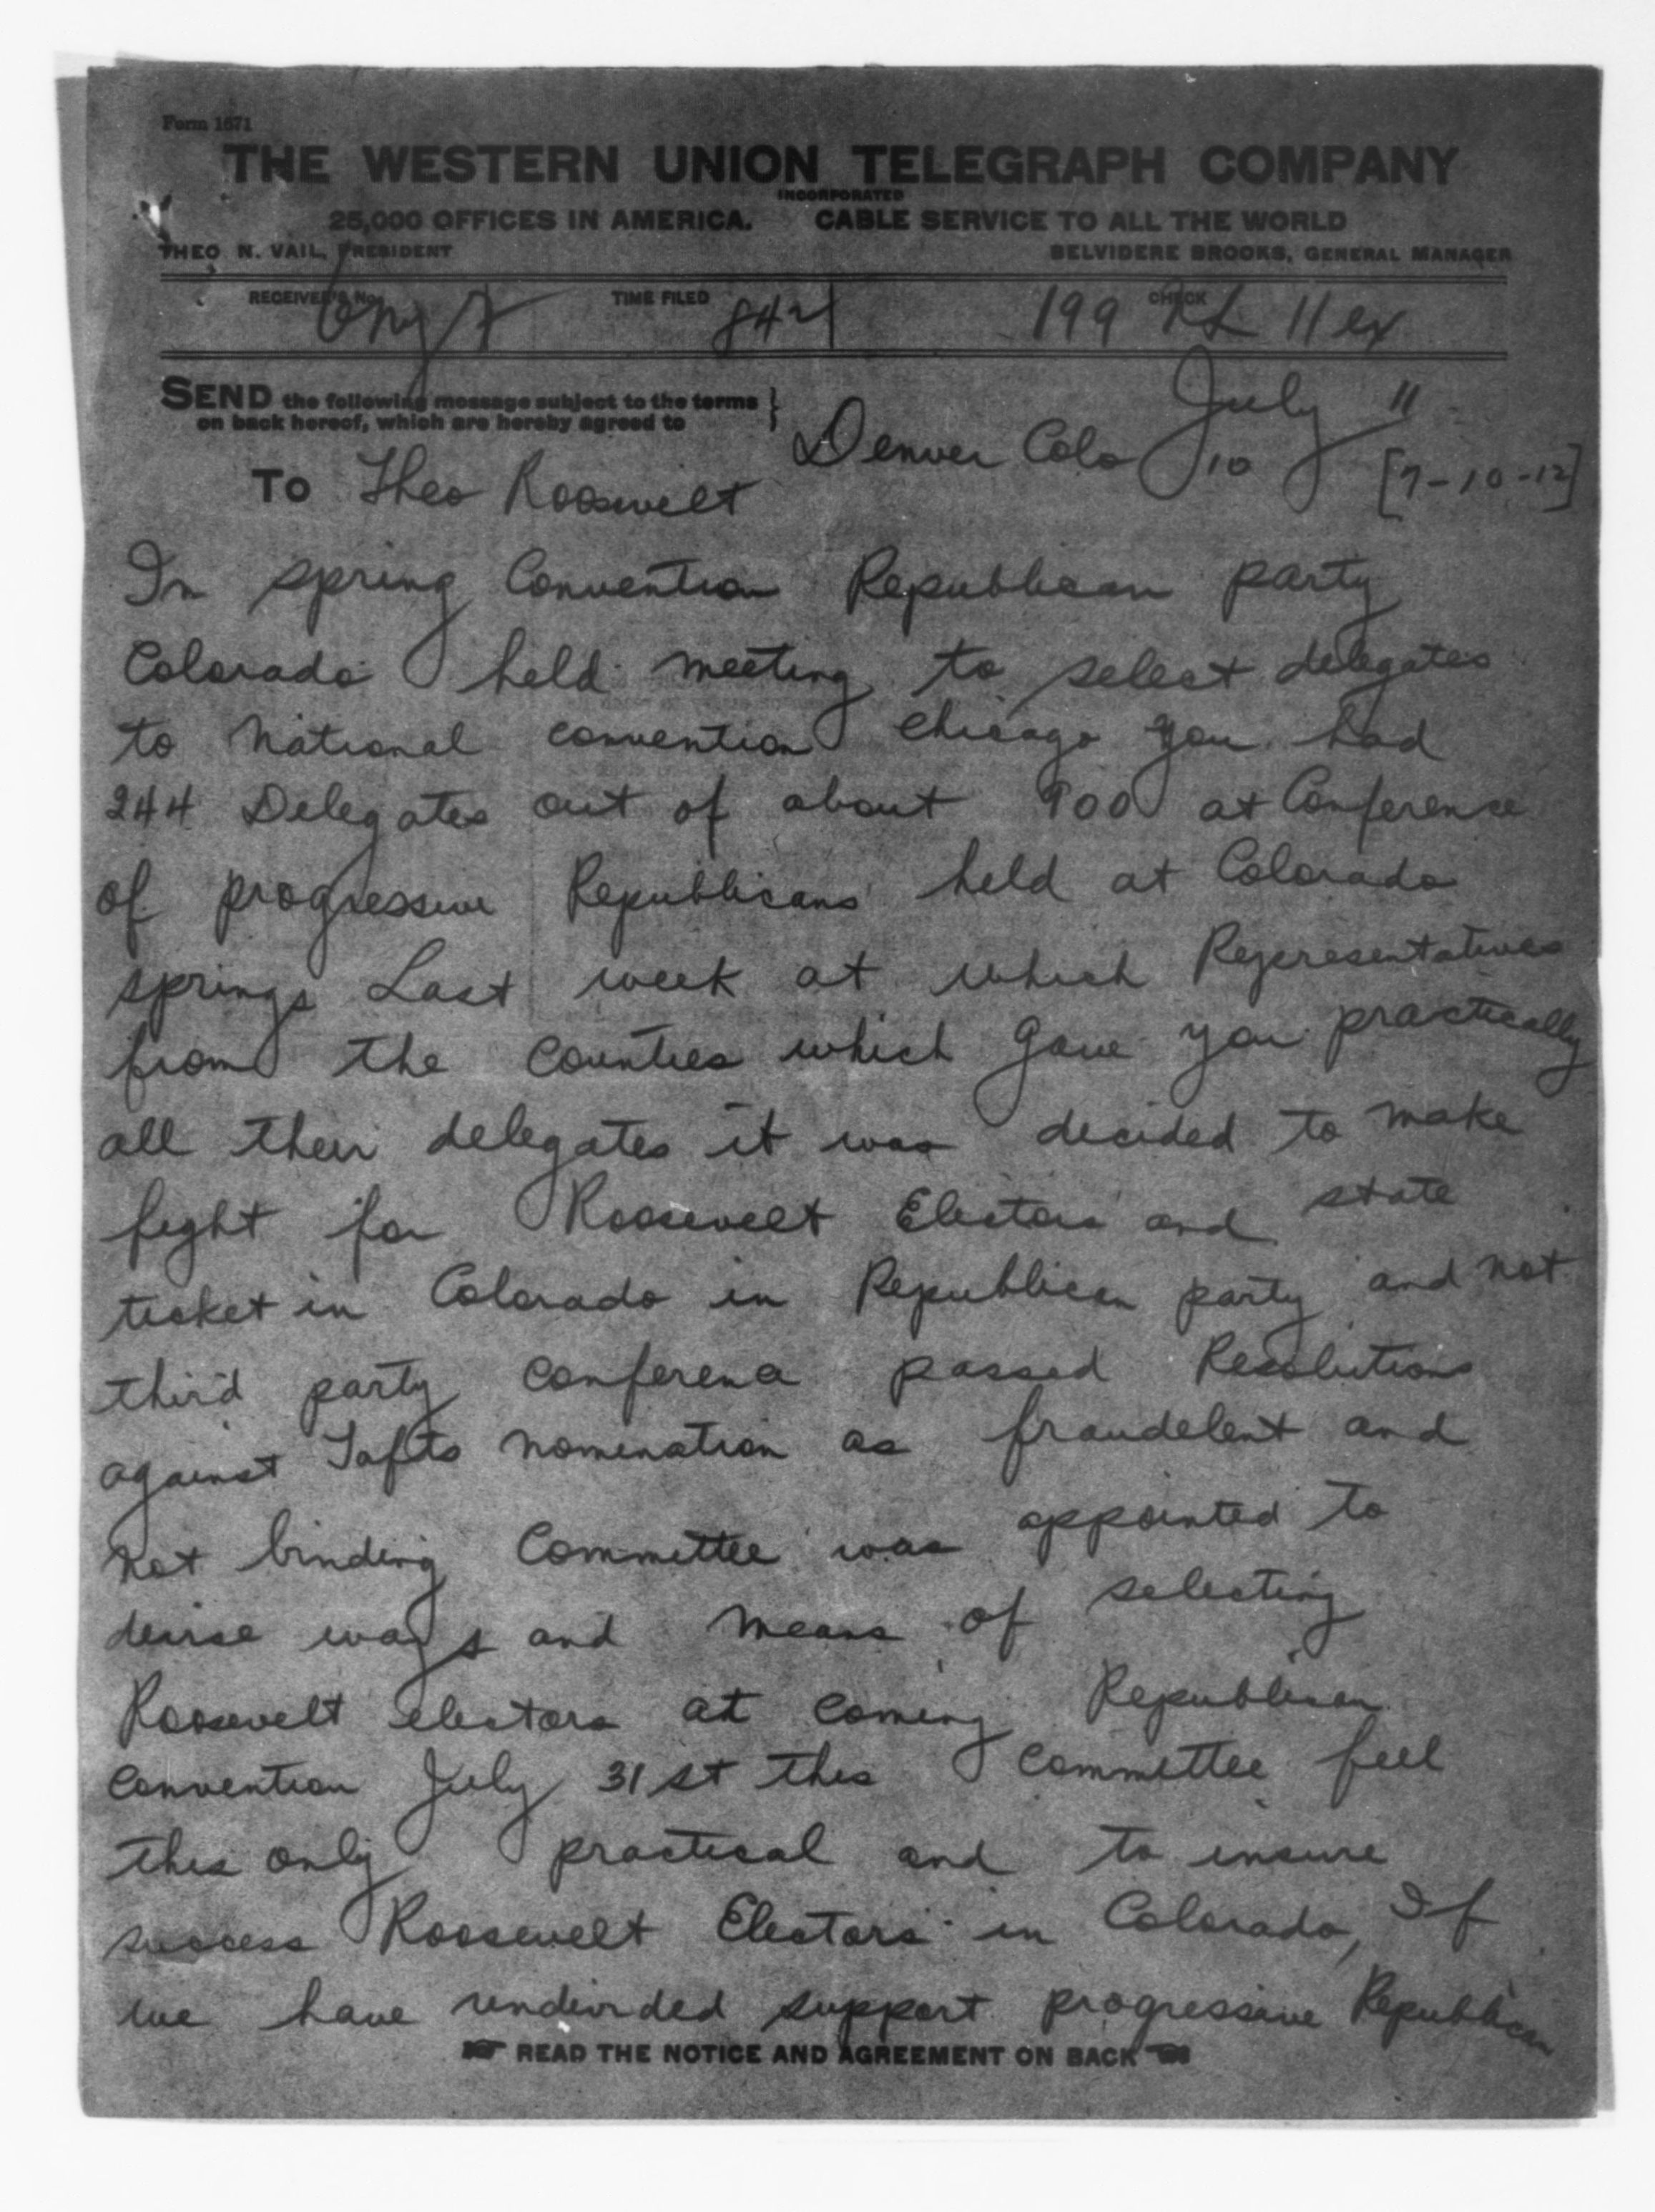 Form 1671
THE WESTERN UNION TELEGRAPH COMPANY
INCORPORATED
25,000 OFFICES IN AMERICA. CABLE SERVICE TO ALL THE WORLD
THEO N. VAIL, PRESIDENT BELVIDERE BROOKS, GENERAL MANAGER
RECEIVER'S No. TIME FILED CHECK
842 199 11 ex
SEND the following message subject to the terms
on back hereof, which are hereby agreed to
July 11
Denver Colo 10 [7-10-12]
To Theo Roosevelt
In spring Convention Republican party
Colorado held meeting to select delegates
to National convention Chicago you had
244 Delegates out of about 900 at Conference
of progressive Republicans held at Colorado
springs Last week at which Representatives
from the Counties which gave you practically
all their delegates it was decided to make
fight for Roosevelt Electors and state
ticket in Colorado in Republican party and not
third party conference passed Resolutions
against Tafts nomination as fraudelent and
not binding Committee was appointed to
devise ways and means of selecting
Roosevelt electors at coming Republican
Convention July 31st this committee feel
this only practical and to insure
success Roosevelt Electors in Colorado, If
we have undivided support progressive Republican
READ THE NOTICE AND AGREEMENT ON BACK